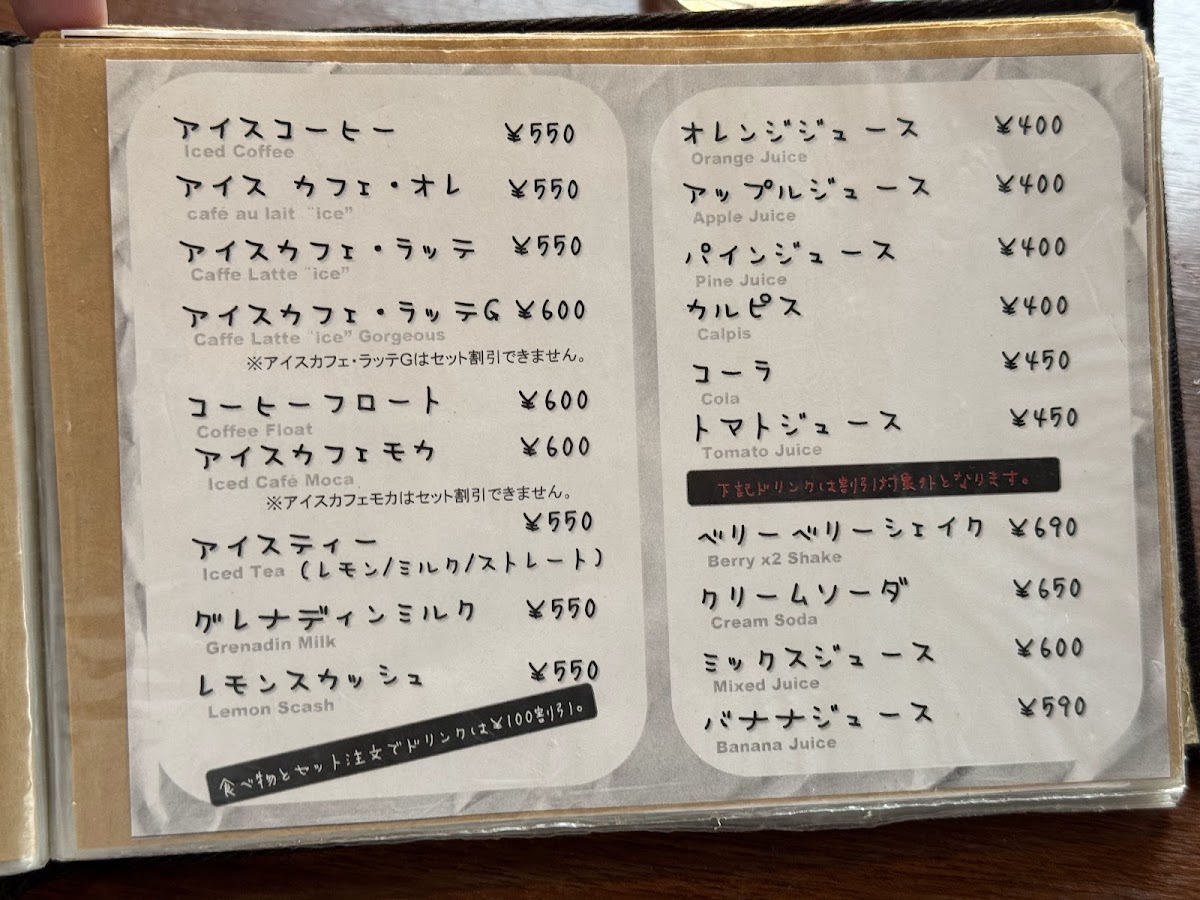 アイスコーヒー ¥550
Iced Coffee
アイス カフェ・オレ ¥550
café au lait "ice"
アイスカフェ・ラッテ ¥550
Caffe Latte "ice"
アイスカフェ・ラッテG ¥600
Caffe Latte "ice" Gorgeous
※アイスカフェ・ラッテGはセット割引できません。
コーヒーフロート ¥600
Coffee Float
アイスカフェモカ ¥600
Iced Café Moca
※アイスカフェモカはセット割引できません。
アイスティー ¥550
Iced Tea (レモン/ミルク/ストレート)
グレナディンミルク ¥550
Grenadin Milk
レモンスカッシュ ¥550
Lemon Scash
食べ物とセット注文でドリンクは¥100割引。
オレンジジュース ¥400
Orange Juice
アップルジュース ¥400
Apple Juice
パインジュース ¥400
Pine Juice
カルピス ¥400
Calpis
コーラ ¥450
Cola
トマトジュース ¥450
Tomato Juice
下記ドリンクは割引対象外となります。
ベリーベリーシェイク ¥690
Berry x2 Shake
クリームソーダ ¥650
Cream Soda
ミックスジュース ¥600
Mixed Juice
バナナジュース ¥590
Banana Juice